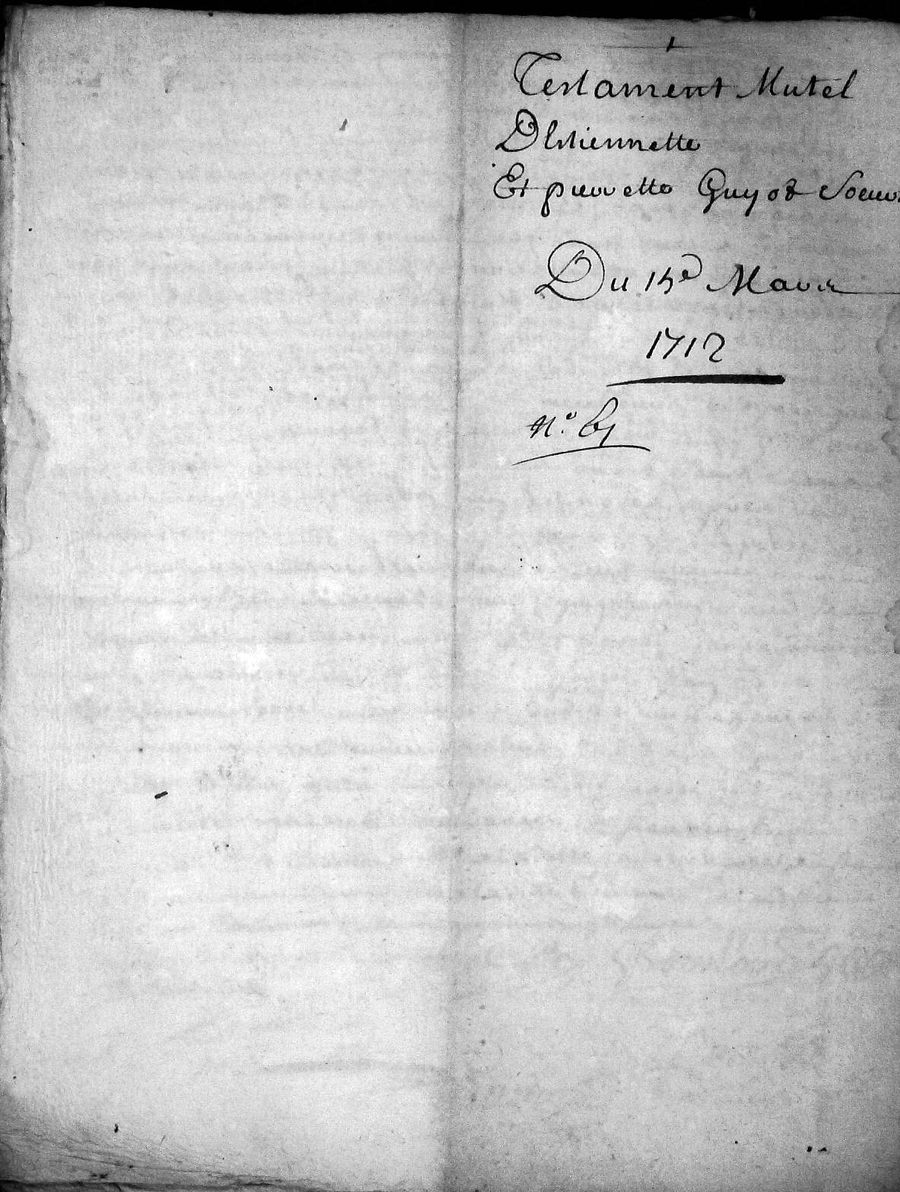 Testament Mutel
D'Estiennette
Et pierrette Guyot Soeurs
Du 15e Mars
1712
n.o 61